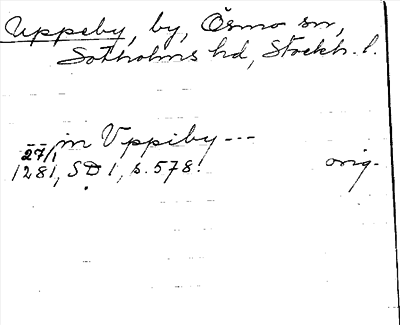 Uppeby, by, Ösmo sn,
Sotholms hd, Stockh. l.
-- in Uppiby ---
27/1
1281, SD 1, s. 578.
orig.